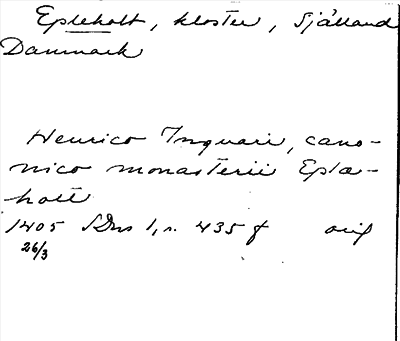 Epleholt, kloster, Själland
Danmark
Henrico Inquari, cano-
nico monasterii Epla-
holt
1405 SDns 1, s. 435 f orig
26/3